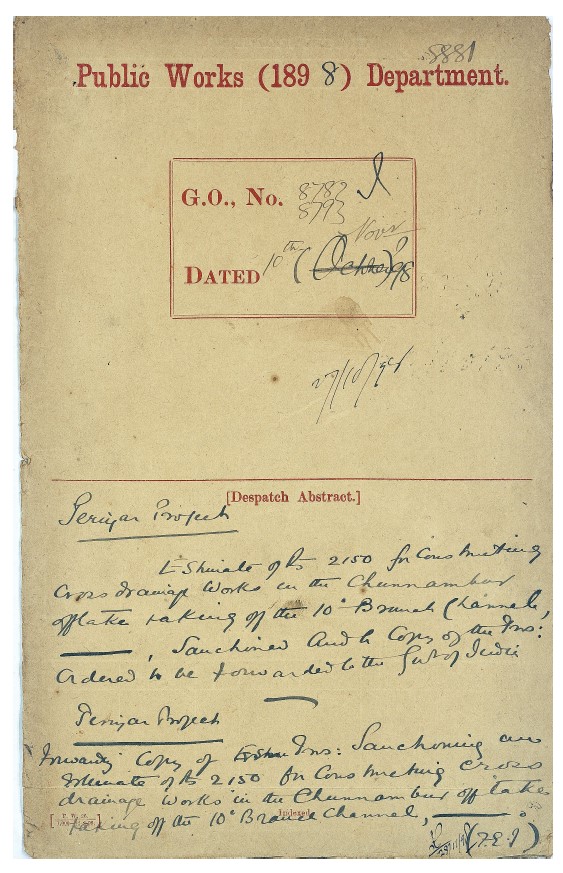 8881
Public Works (1898) Department.
G.O., No. 8782 I
8793
Novr
DATED 10th (Octber) 98
27/10/98
[Despatch Abstract.]
Periyar Project
Estimate of Rs 2150 for Constructing
Cross drainage Works in the Chunnambur
offtake taking off the 10th Branch Channel,
, Sanctioned and a Copy of the
ordered to be forwarded to the Govt of India
Periyar Project
Forwards Copy of Sanctioning an
Estimate of Rs 2150 for Constructing cross
drainage Works in the Chunnambur off take
taking off the 10th Branch Channel,
Indexed
(F.E.I)